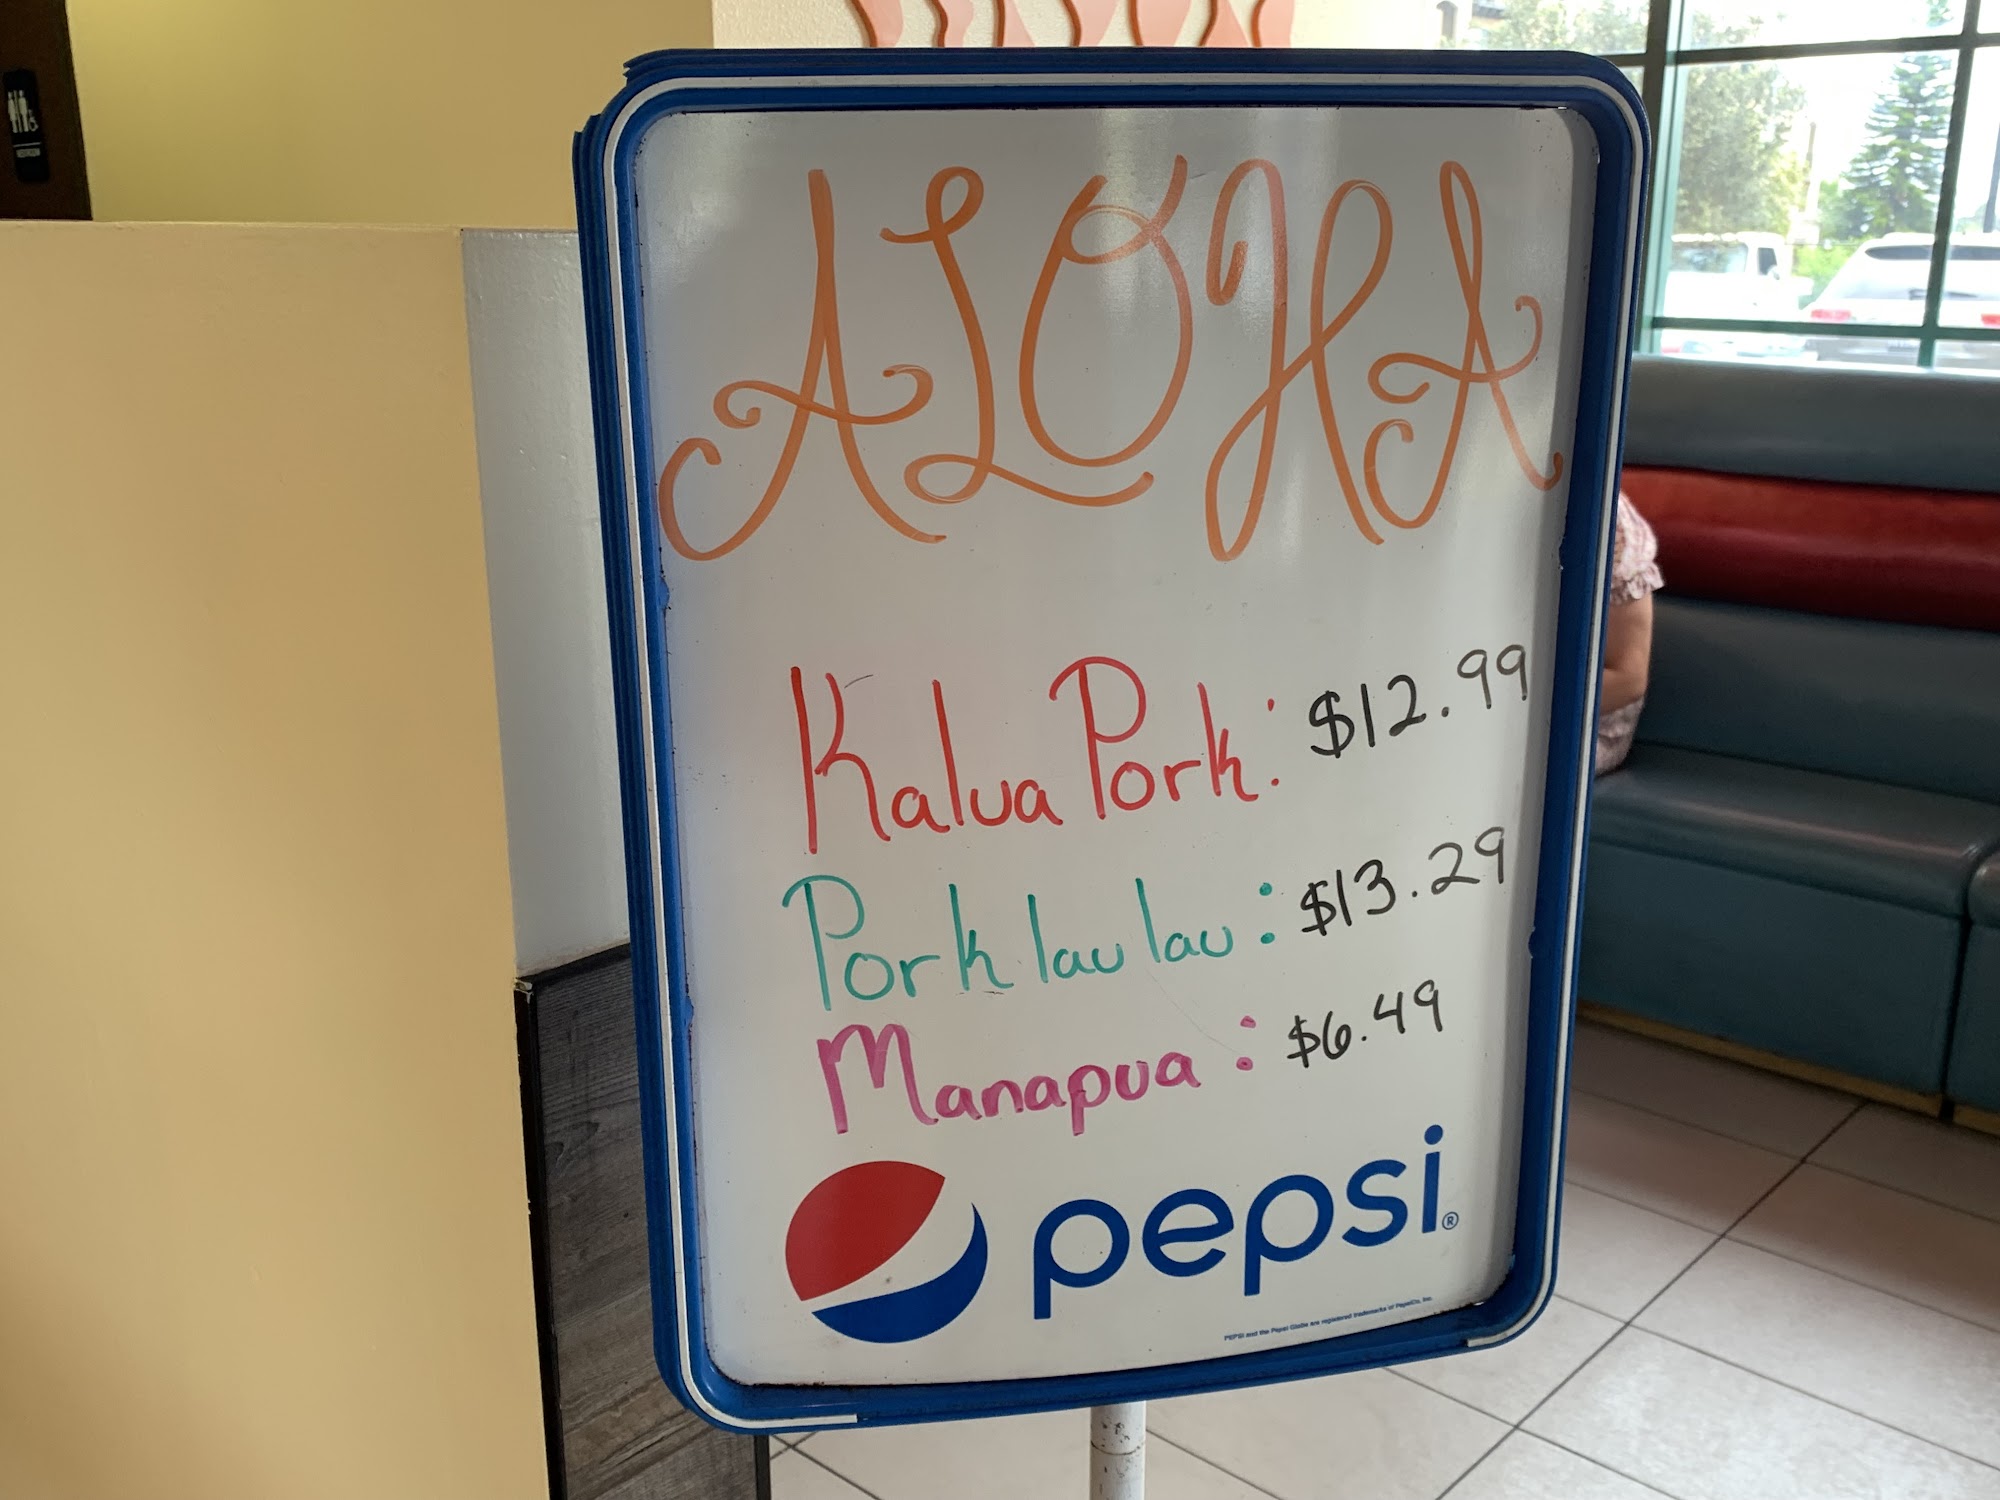 ALOHA
Kalua Pork: $12.99
Pork lau lau: $13.29
Manapua: $6.49
pepsi®
PEPSI and the Pepsi Globe are registered trademarks of PepsiCo, Inc.